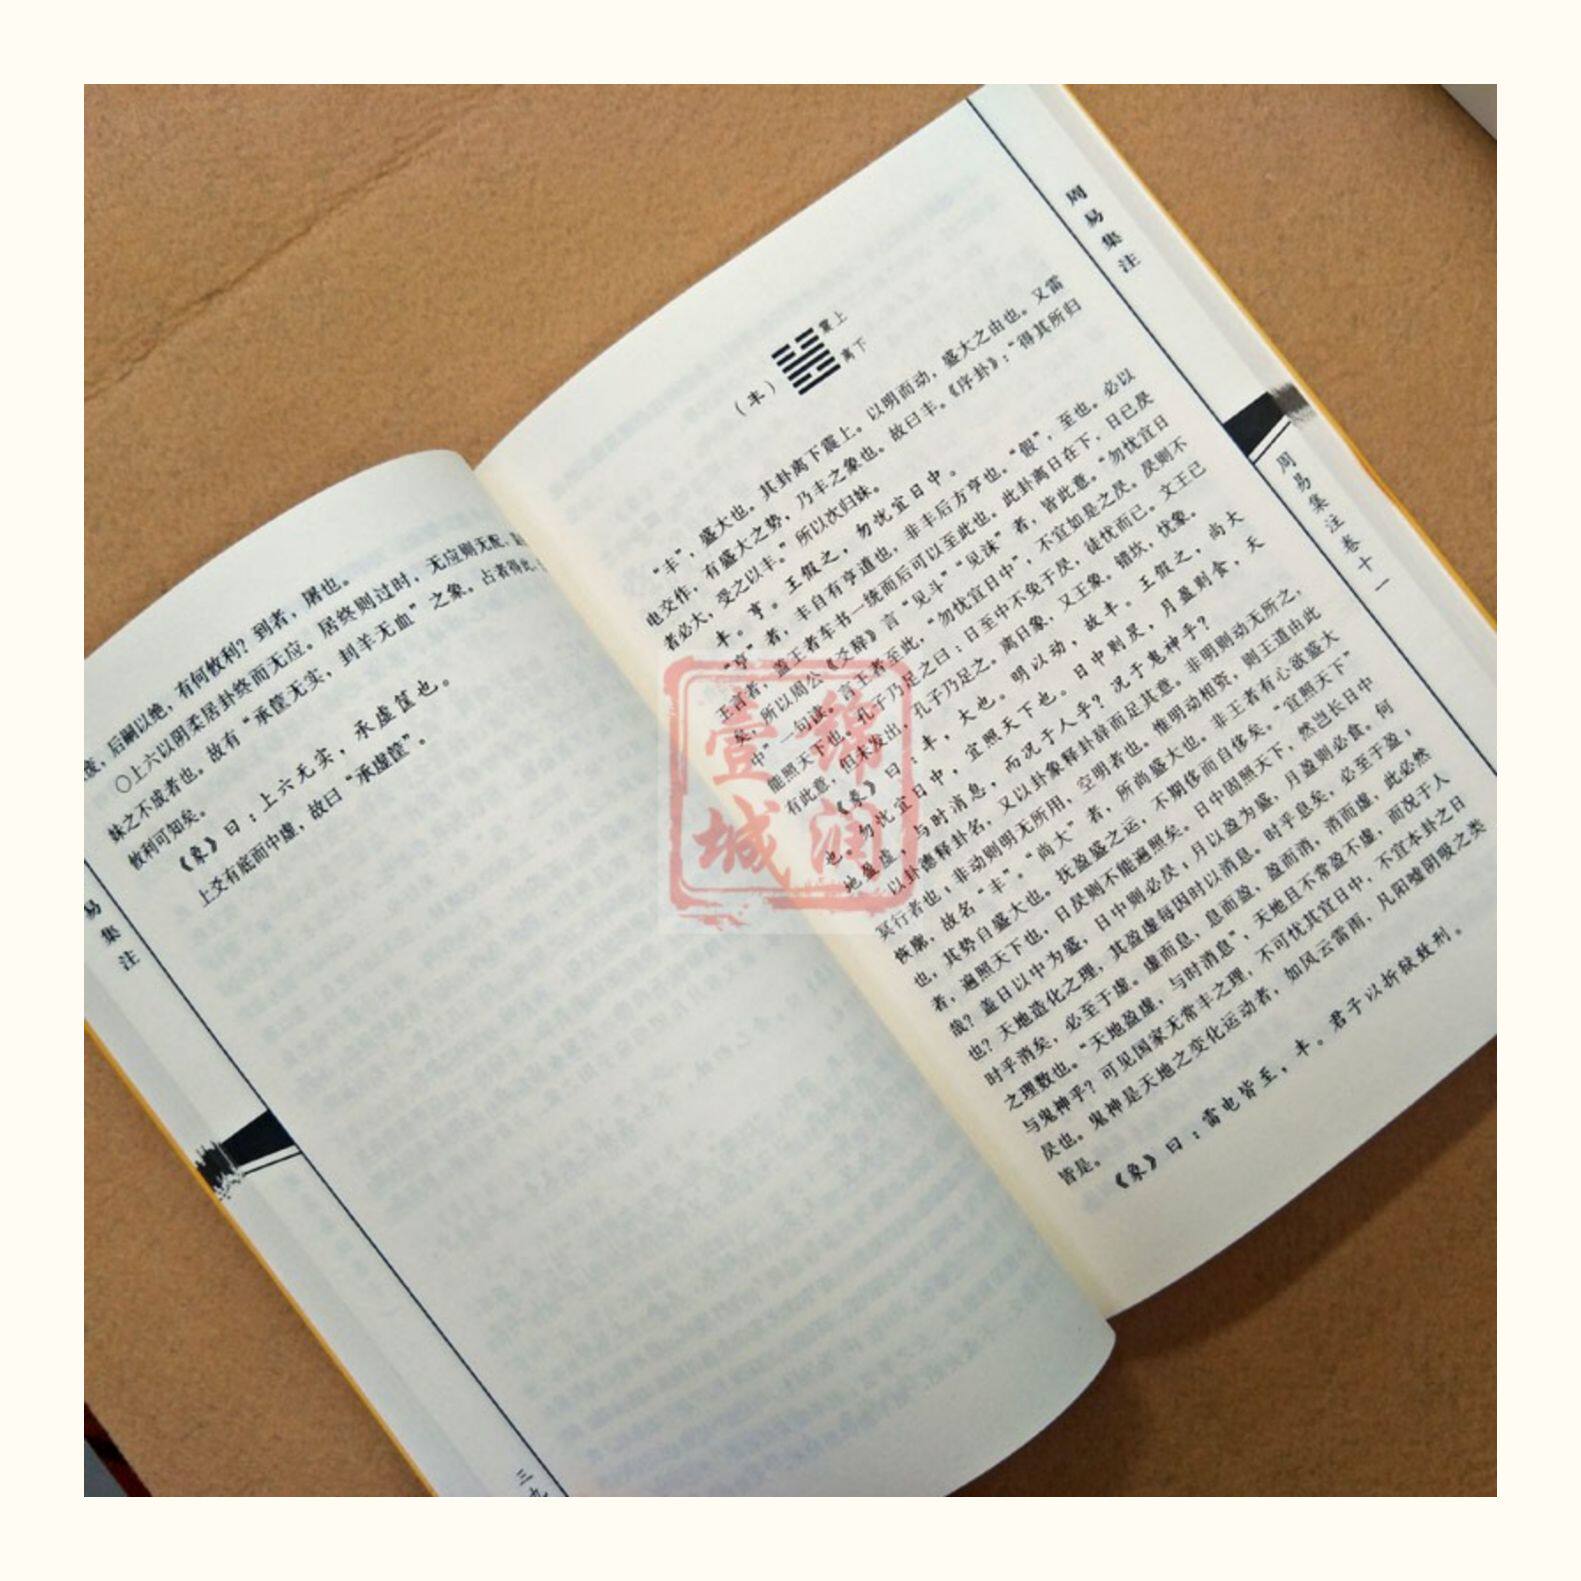 废，后嗣以绝，有何攸利？刲者，屠也。
○上六以阴柔居卦终而无应。居终则过时，无应则无配，
妹之不成者也。故有“承筐无实，刲羊无血”之象。占者得此，
攸利可知矣。
《象》曰：上六无实，承虚筐也。
上爻有底而中虚，故曰“承虚筐”。
易集注
三九
周易集注
周易集注卷十一
（丰）
震上
离下
“丰”，盛大也。其卦离下震上。以明而动，盛大之由也。又雷
电交作，有盛大之势，乃丰之象也。故曰丰。《序卦》：“得其所归
者必大，受之以丰。”所以次归妹。
丰。亨。王假之，勿忧宜日中。
“亨”者，丰自有亨道也，非丰后方亨也。“假”，至也。必以
王言者，盖王者车书一统而后可以至此也。此卦离日在下，日已昃
矣，所以周公《爻辞》言“见斗”“见沫”者，皆此意。“勿忧宜日
中”一句读。言王者至此，“勿忧宜日中”，不宜如是之昃。昃则不
能照天下也。孔子乃足之曰：日至中不免于昃，徒忧而已。文王已
有此意，但未发出，孔子乃足之。离日象，又王象。错坎，忧象。
《彖》曰：丰，大也。明以动，故丰。王假之，尚大
也。勿忧宜日中，宜照天下也。日中则昃，月盈则食，天
地盈虚，与时消息，而况于人乎？况于鬼神乎？
以卦德释卦名，又以卦象释卦辞而足其意。非明则动无所之，
冥行者也；非动则明无所用，空明者也。惟明动相资，则王道由此
恢廓，故名“丰”。“尚大”者，所尚盛大也。非王者有心欲盛大
也，其势自盛大也。抚盈盛之运，不期侈而自侈矣。“宜照天下”
者，遍照天下也，日昃则不能遍照矣。日中固照天下，然岂长日中
哉？盖日以中为盛，日中则必昃；月以盈为盛，月盈则必食。何
也？天地造化之理，其盈虚每因时以消息。时乎息矣，必至于盈；
时乎消矣，必至于虚。虚而息，息而盈，盈而消，消而虚，此必然
之理数也。“天地盈虚，与时消息”，天地且不常盈不虚，而况于人
与鬼神乎？可见国家无常丰之理，不可忧其宜日中，不宜本卦之日
昃也。鬼神是天地之变化运动者，如风云雷雨，凡阳嘘阴吸之类
皆是。
《象》曰：雷电皆至，丰。君子以折狱致刑。
锦润
壹城